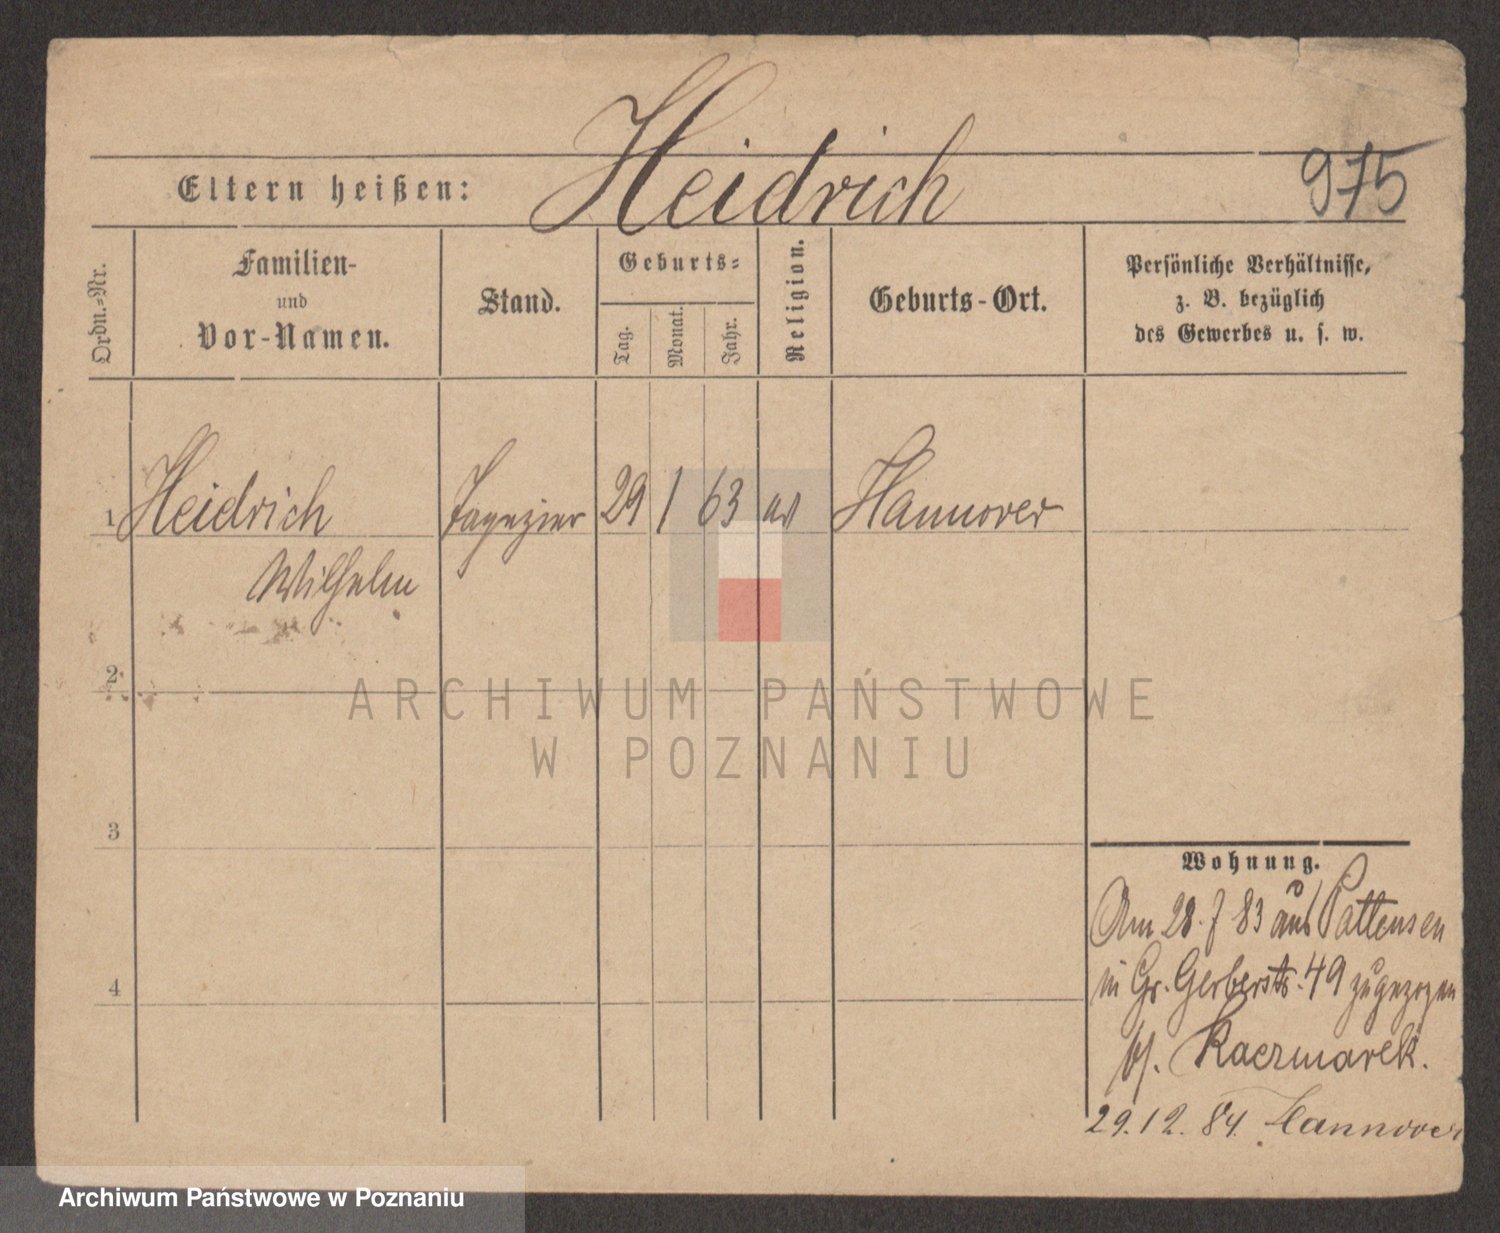 Heidrich
975
Eltern heißen:
Ordn.-Nr.
Familien-
und
Vor-Namen.
Stand.
Geburts-
Tag.
Monat.
Jahr.
Religion.
Geburts-Ort.
Persönliche Verhältnisse,
z. B. bezüglich
des Gewerbes u. s. w.
1 Heidrich 29 1 63 ev Hannover
Wilhelm
2
ARCHIWUM PAŃSTWOWE
W POZNANIU
3
Wohnung.
Am 28. 7 83 aus Pattensen
in Gr. Gerberstr. 49 zugezogen
Kaczmarek.
4
29.12.84. Hannover
Archiwum Państwowe w Poznaniu